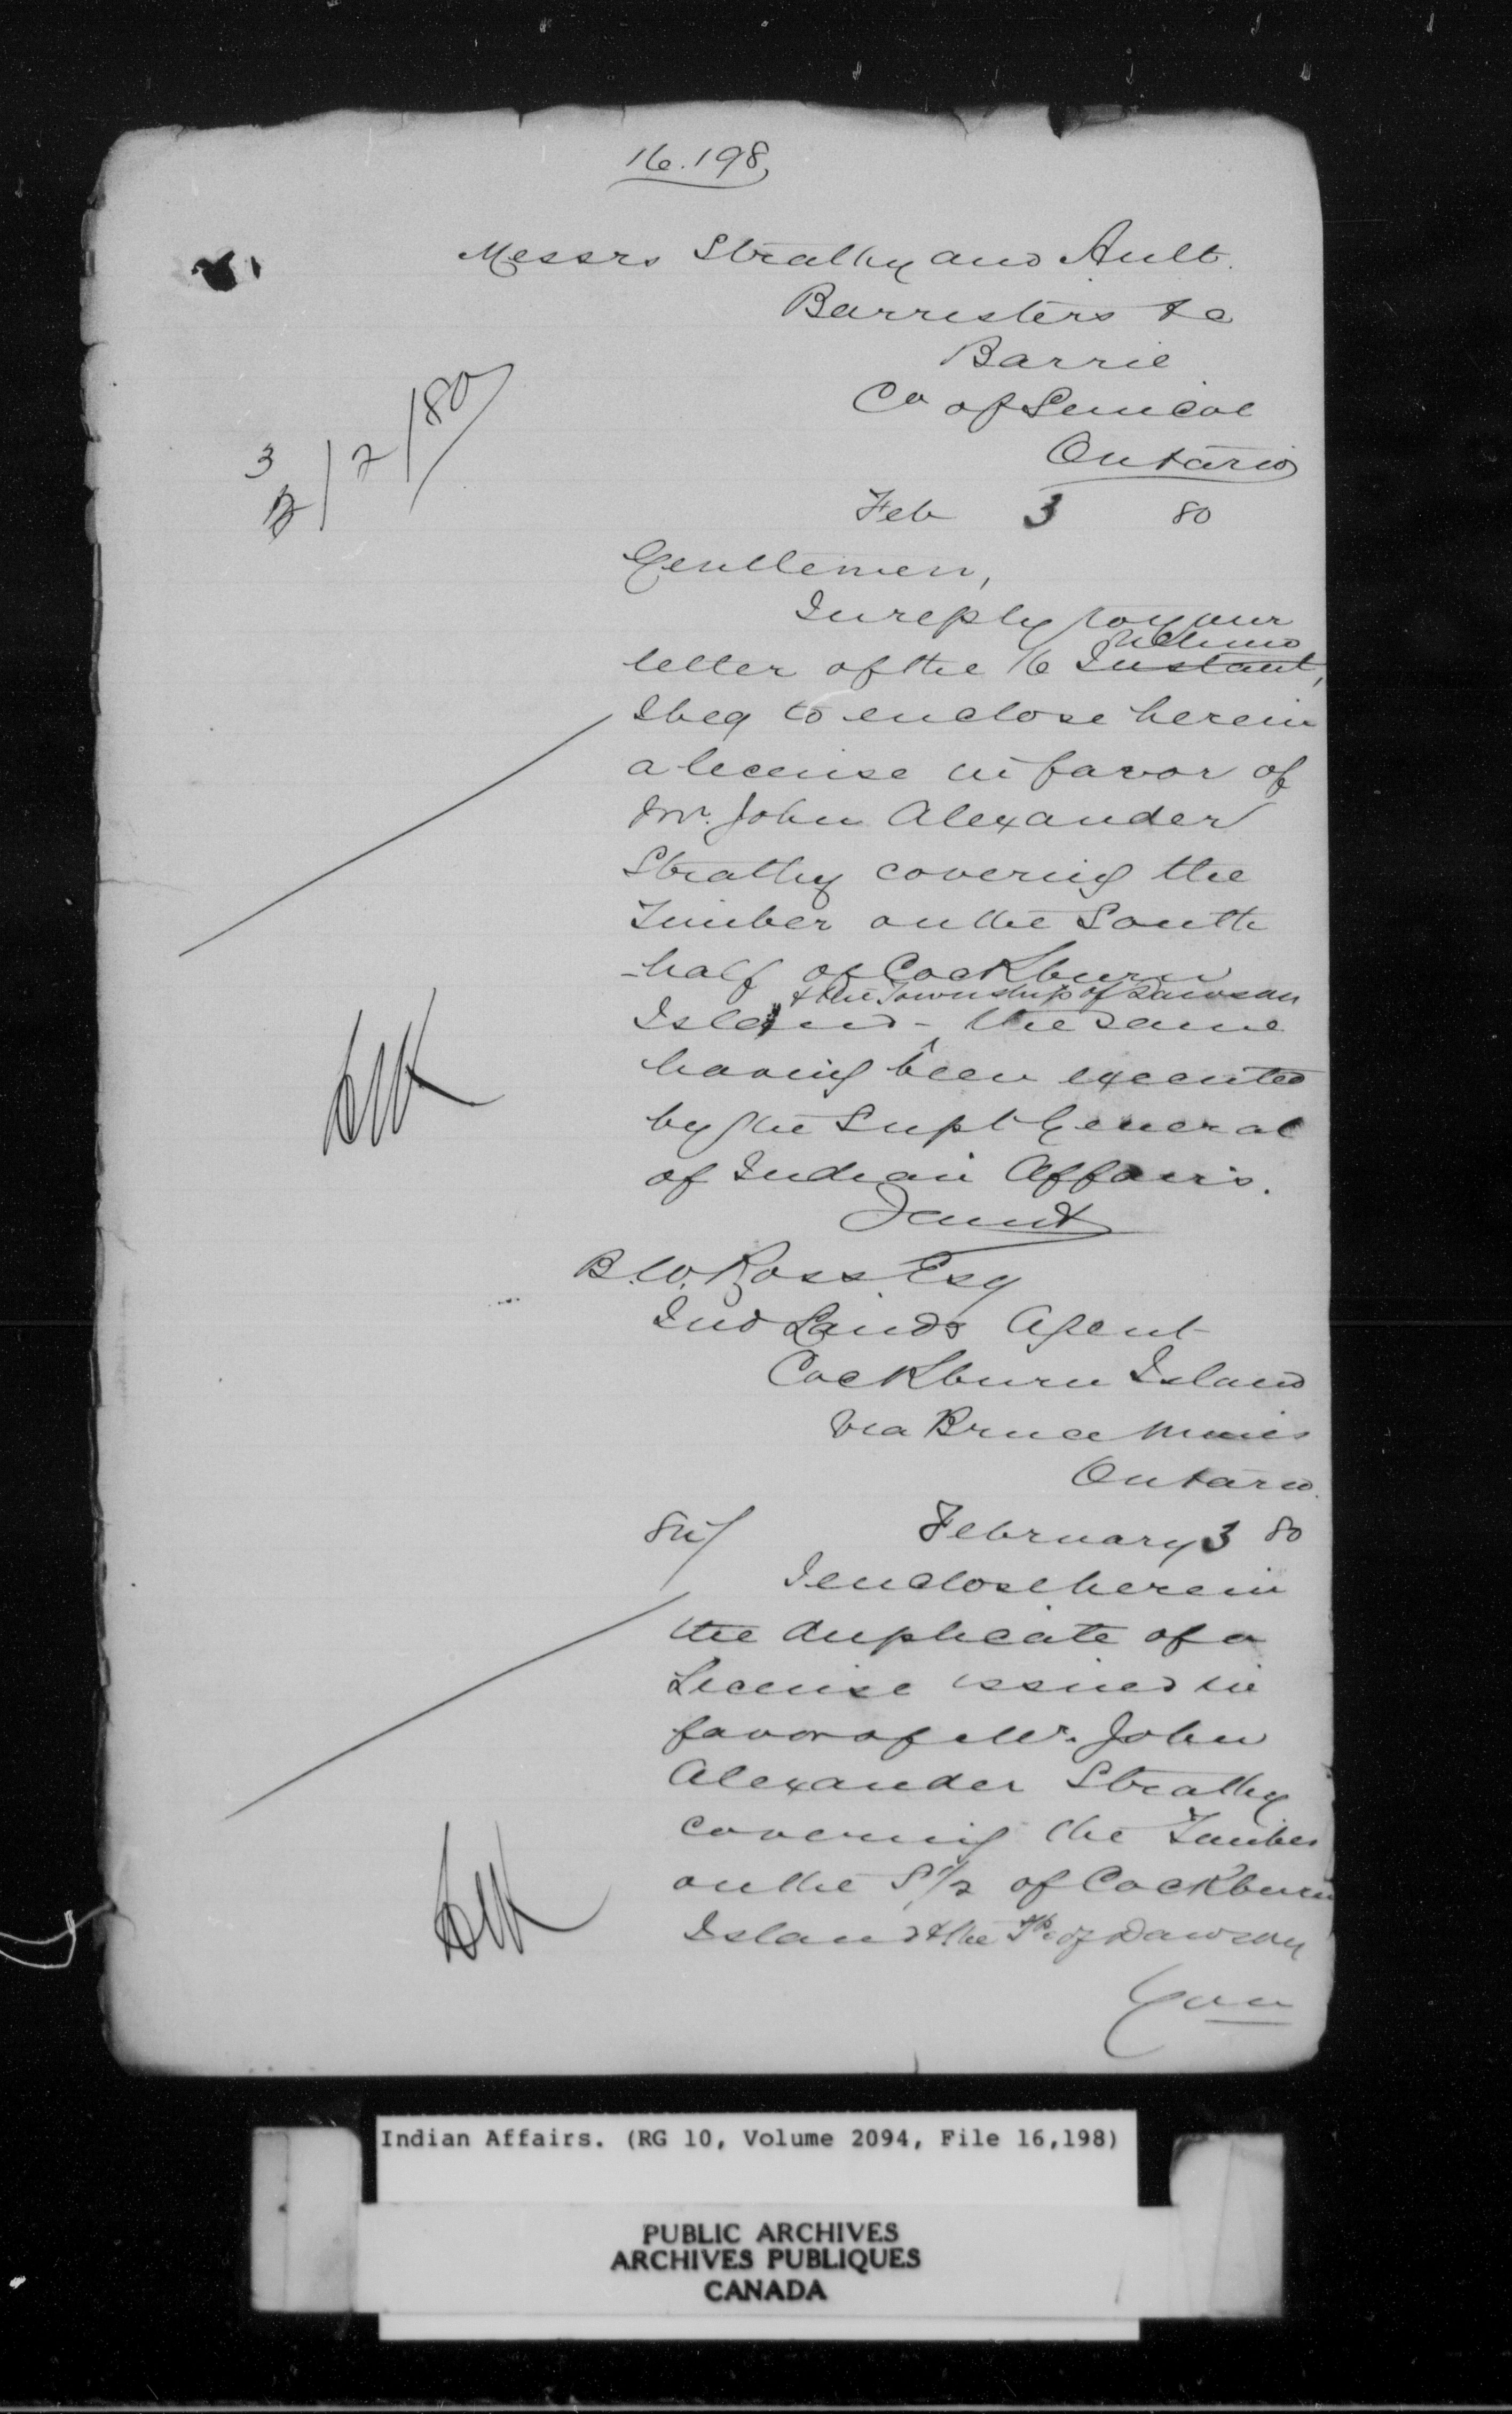 16.198
Messrs Strathy and Ault.
Barristers &c
Barrie
Co of Simcoe
Ontario
3/2/80
Feb 3 80
Gentlemen,
In reply to your
letter of the 16 Instant, Ultimo
I beg to enclose herein
a license in favor of
Mr. John Alexander
Strathy covering the
Timber on the South
-half of Cockburn
& the Township of Dawson
Island - the same
having been executed
by the Supt General
of Indian Affairs.
B.W. Ross Esq
Ind Lands Agent
Cockburn Island
Via Bruce Mines
Ontario.
Sir/ February 3 80
I enclose herein
the duplicate of a
License issued in
favor of Mr. John
Alexander Strathy
covering the Timber
on the S 1/2 of Cockburn
Island & the Tp. of Dawson
Indian Affairs. (RG 10, Volume 2094, File 16,198)
PUBLIC ARCHIVES
ARCHIVES PUBLIQUES
CANADA